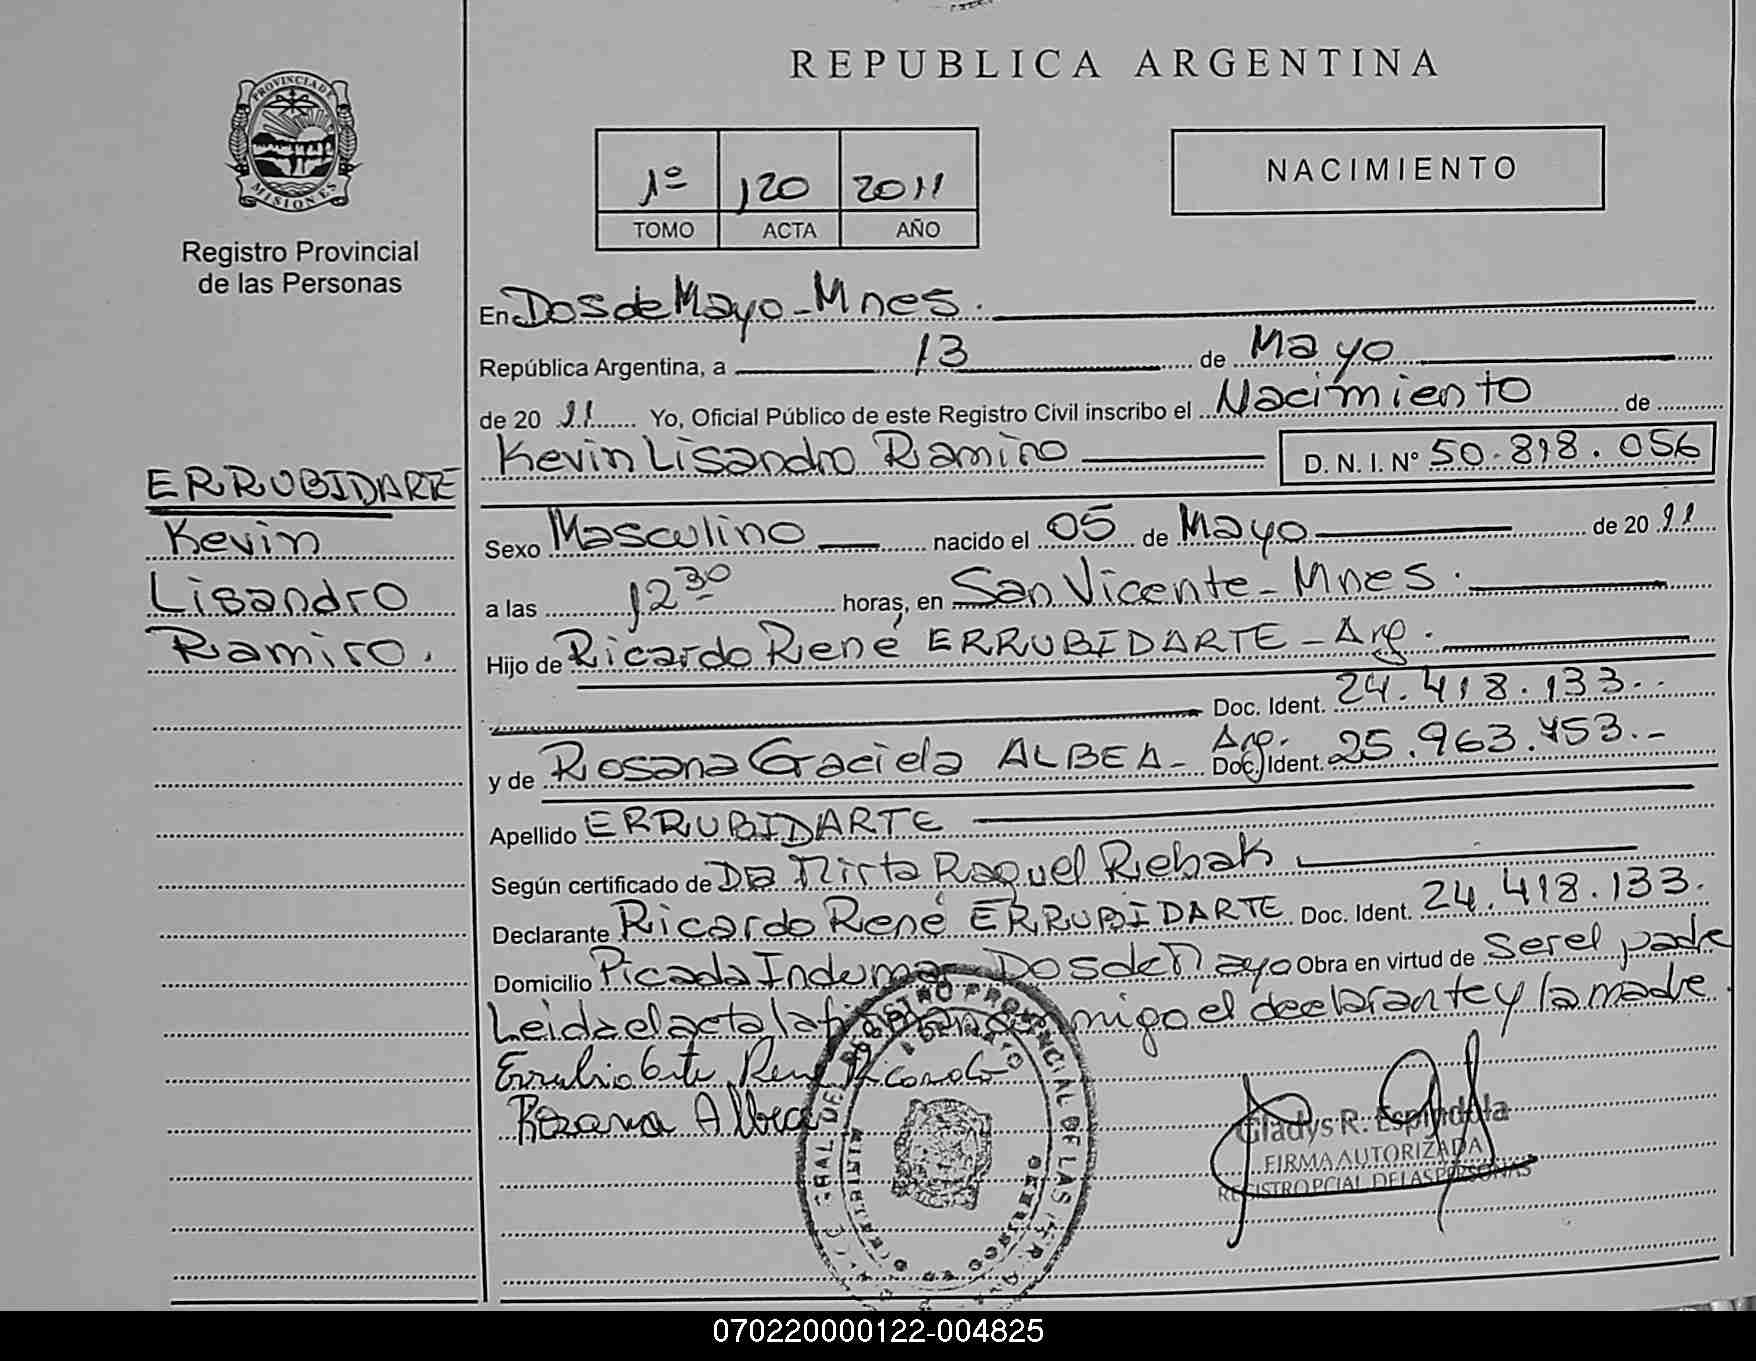 REPUBLICA ARGENTINA
PROVINCIA DE
MISIONES
Registro Provincial
de las Personas
1º 120 2011
TOMO ACTA AÑO
NACIMIENTO
En Dos de Mayo - Mnes.
República Argentina, a 13 de Mayo
de 20 11 Yo, Oficial Público de este Registro Civil inscribo el Nacimiento de
Kevin Lisandro Ramiro D. N. I. Nº 50.818.056
ERRUBIDARTE
Kevin
Lisandro
Ramiro.
Sexo Masculino nacido el 05 de Mayo de 20 11
a las 12 30 horas, en San Vicente - Mnes.
Hijo de Ricardo René ERRUBIDARTE - Arg.
Doc. Ident. 24.418.133.-
y de Rosana Graciela ALBEA - Arg. Doc. Ident. 25.963.453.-
Apellido ERRUBIDARTE
Según certificado de Da Mirta Raquel Rebak
Declarante Ricardo René ERRUBIDARTE Doc. Ident. 24.418.133.
Domicilio Picada Indumar Dos de Mayo Obra en virtud de ser el padre
Leida el acta la firman conmigo el declarante y la madre.
Rosana Albea
REGISTRO PROVINCIAL DE LAS
Gladys R. Espindola
FIRMA AUTORIZADA
REGISTRO PCIAL DE LAS PERSONAS
070220000122-004825